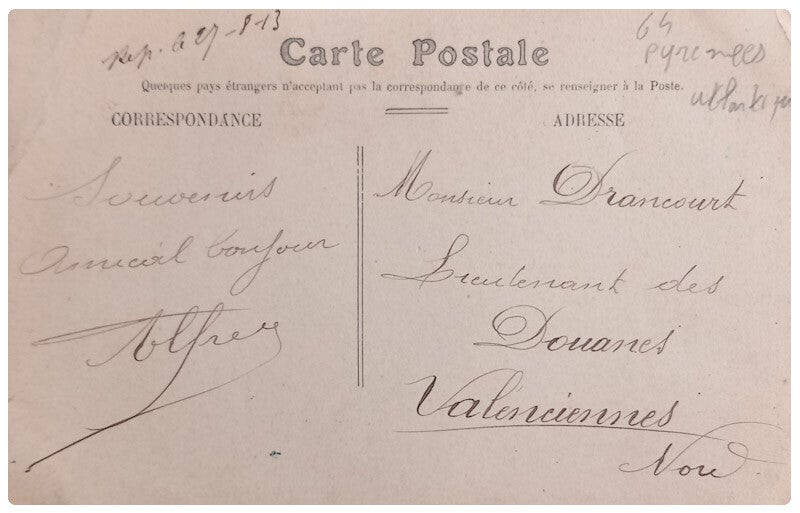 Rep. le 27-8-13
64
Pyrenees
Carte Postale
Quelques pays étrangers n'acceptant pas la correspondance de ce côté, se renseigner à la Poste.
CORRESPONDANCE
Souvenirs
Amical bonjour
Alfred
ADRESSE
Monsieur Drancourt
Lieutenant des
Douanes
Valenciennes
Nord